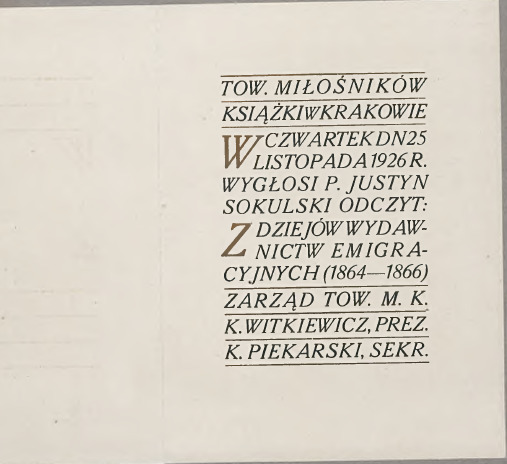 TOW. MIŁOŚNIKÓW
KSIĄŻKI W KRAKOWIE
W CZWARTEK DN 25
LISTOPADA 1926 R.
WYGŁOSI P. JUSTYN
SOKULSKI ODCZYT:
Z DZIEJÓW WYDAW-
NICTW EMIGRA-
CYJNYCH (1864—1866)
ZARZĄD TOW. M. K.
K. WITKIEWICZ, PREZ.
K. PIEKARSKI, SEKR.